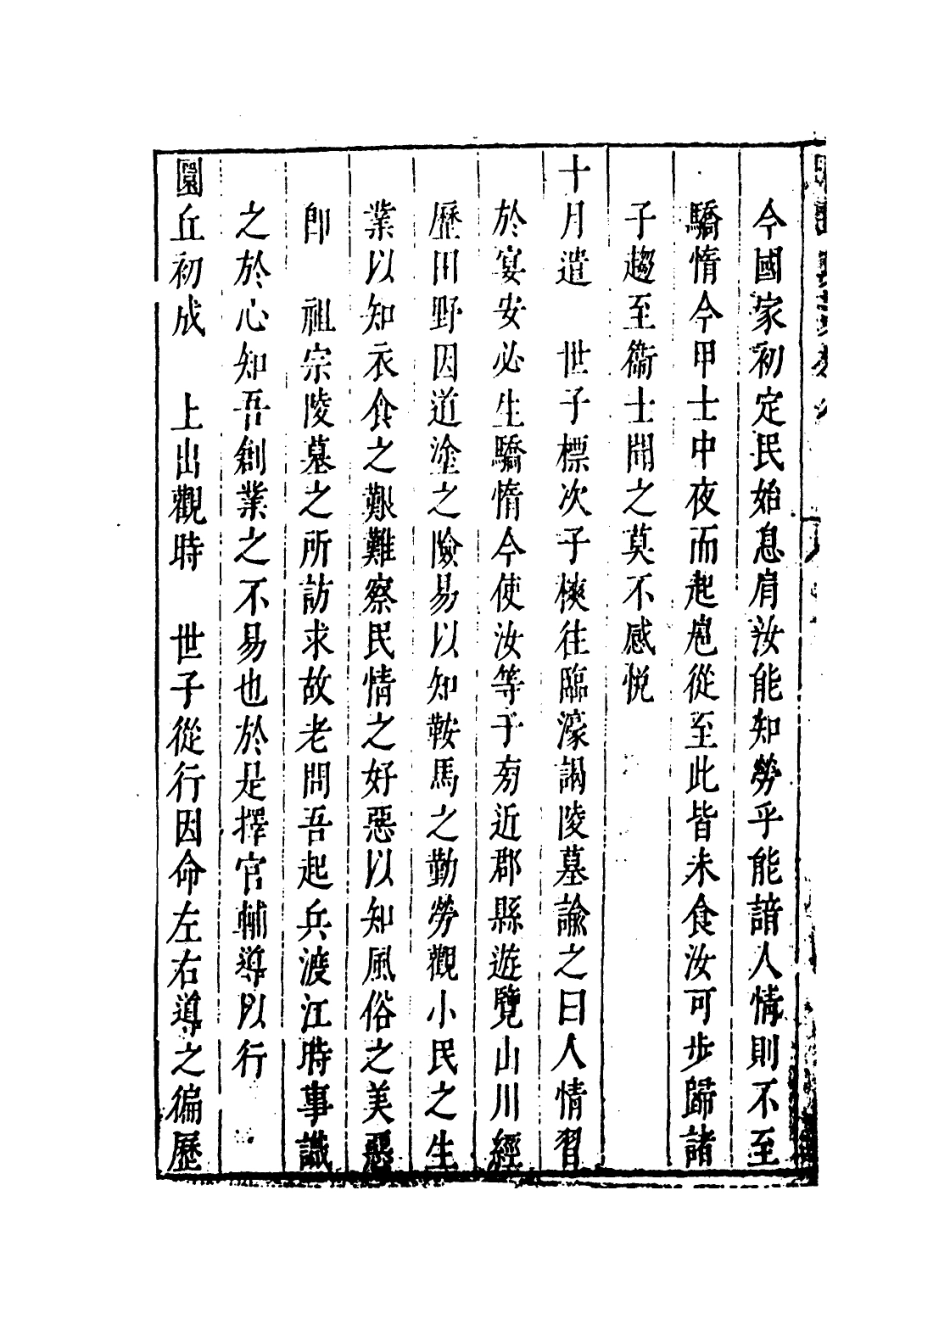 今國家初定民始息肩汝能知勞乎能諳人情則不至
驕惰今甲士中夜而起扈從至此皆未食汝可步歸諸
子趨至衛士聞之莫不感悅
十月遣　世子標次子樉往臨濠謁陵墓諭之曰人情習
於宴安必生驕惰今使汝等于旁近郡縣遊覽山川經
歷田野因道塗之險易以知鞍馬之勤勞觀小民之生
業以知衣食之艱難察民情之好惡以知風俗之美惡
即　祖宗陵墓之所訪求故老問吾起兵渡江時事識
之於心知吾創業之不易也於是擇官輔導以行
圜丘初成　上出觀時　世子從行因命左右導之徧歷